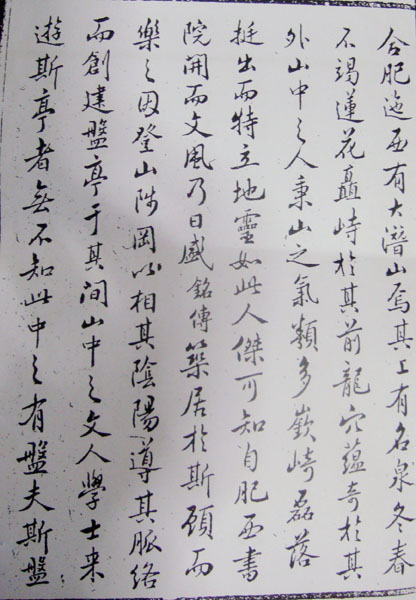 合肥迤西有大潛山焉其上有名泉冬春
不竭蓮花矗峙於其前龍穴蘊奇於其
外山中之人秉山之氣類多嶔崎磊落
挺出而特立地靈如此人傑可知自肥西書
院開而文風乃日盛銘傳築居於斯顧而
樂之因登山陟岡以相其陰陽導其脈絡
而創建盤亭于其間山中之文人學士來
遊斯亭者無不知此中之有盤夫斯盤